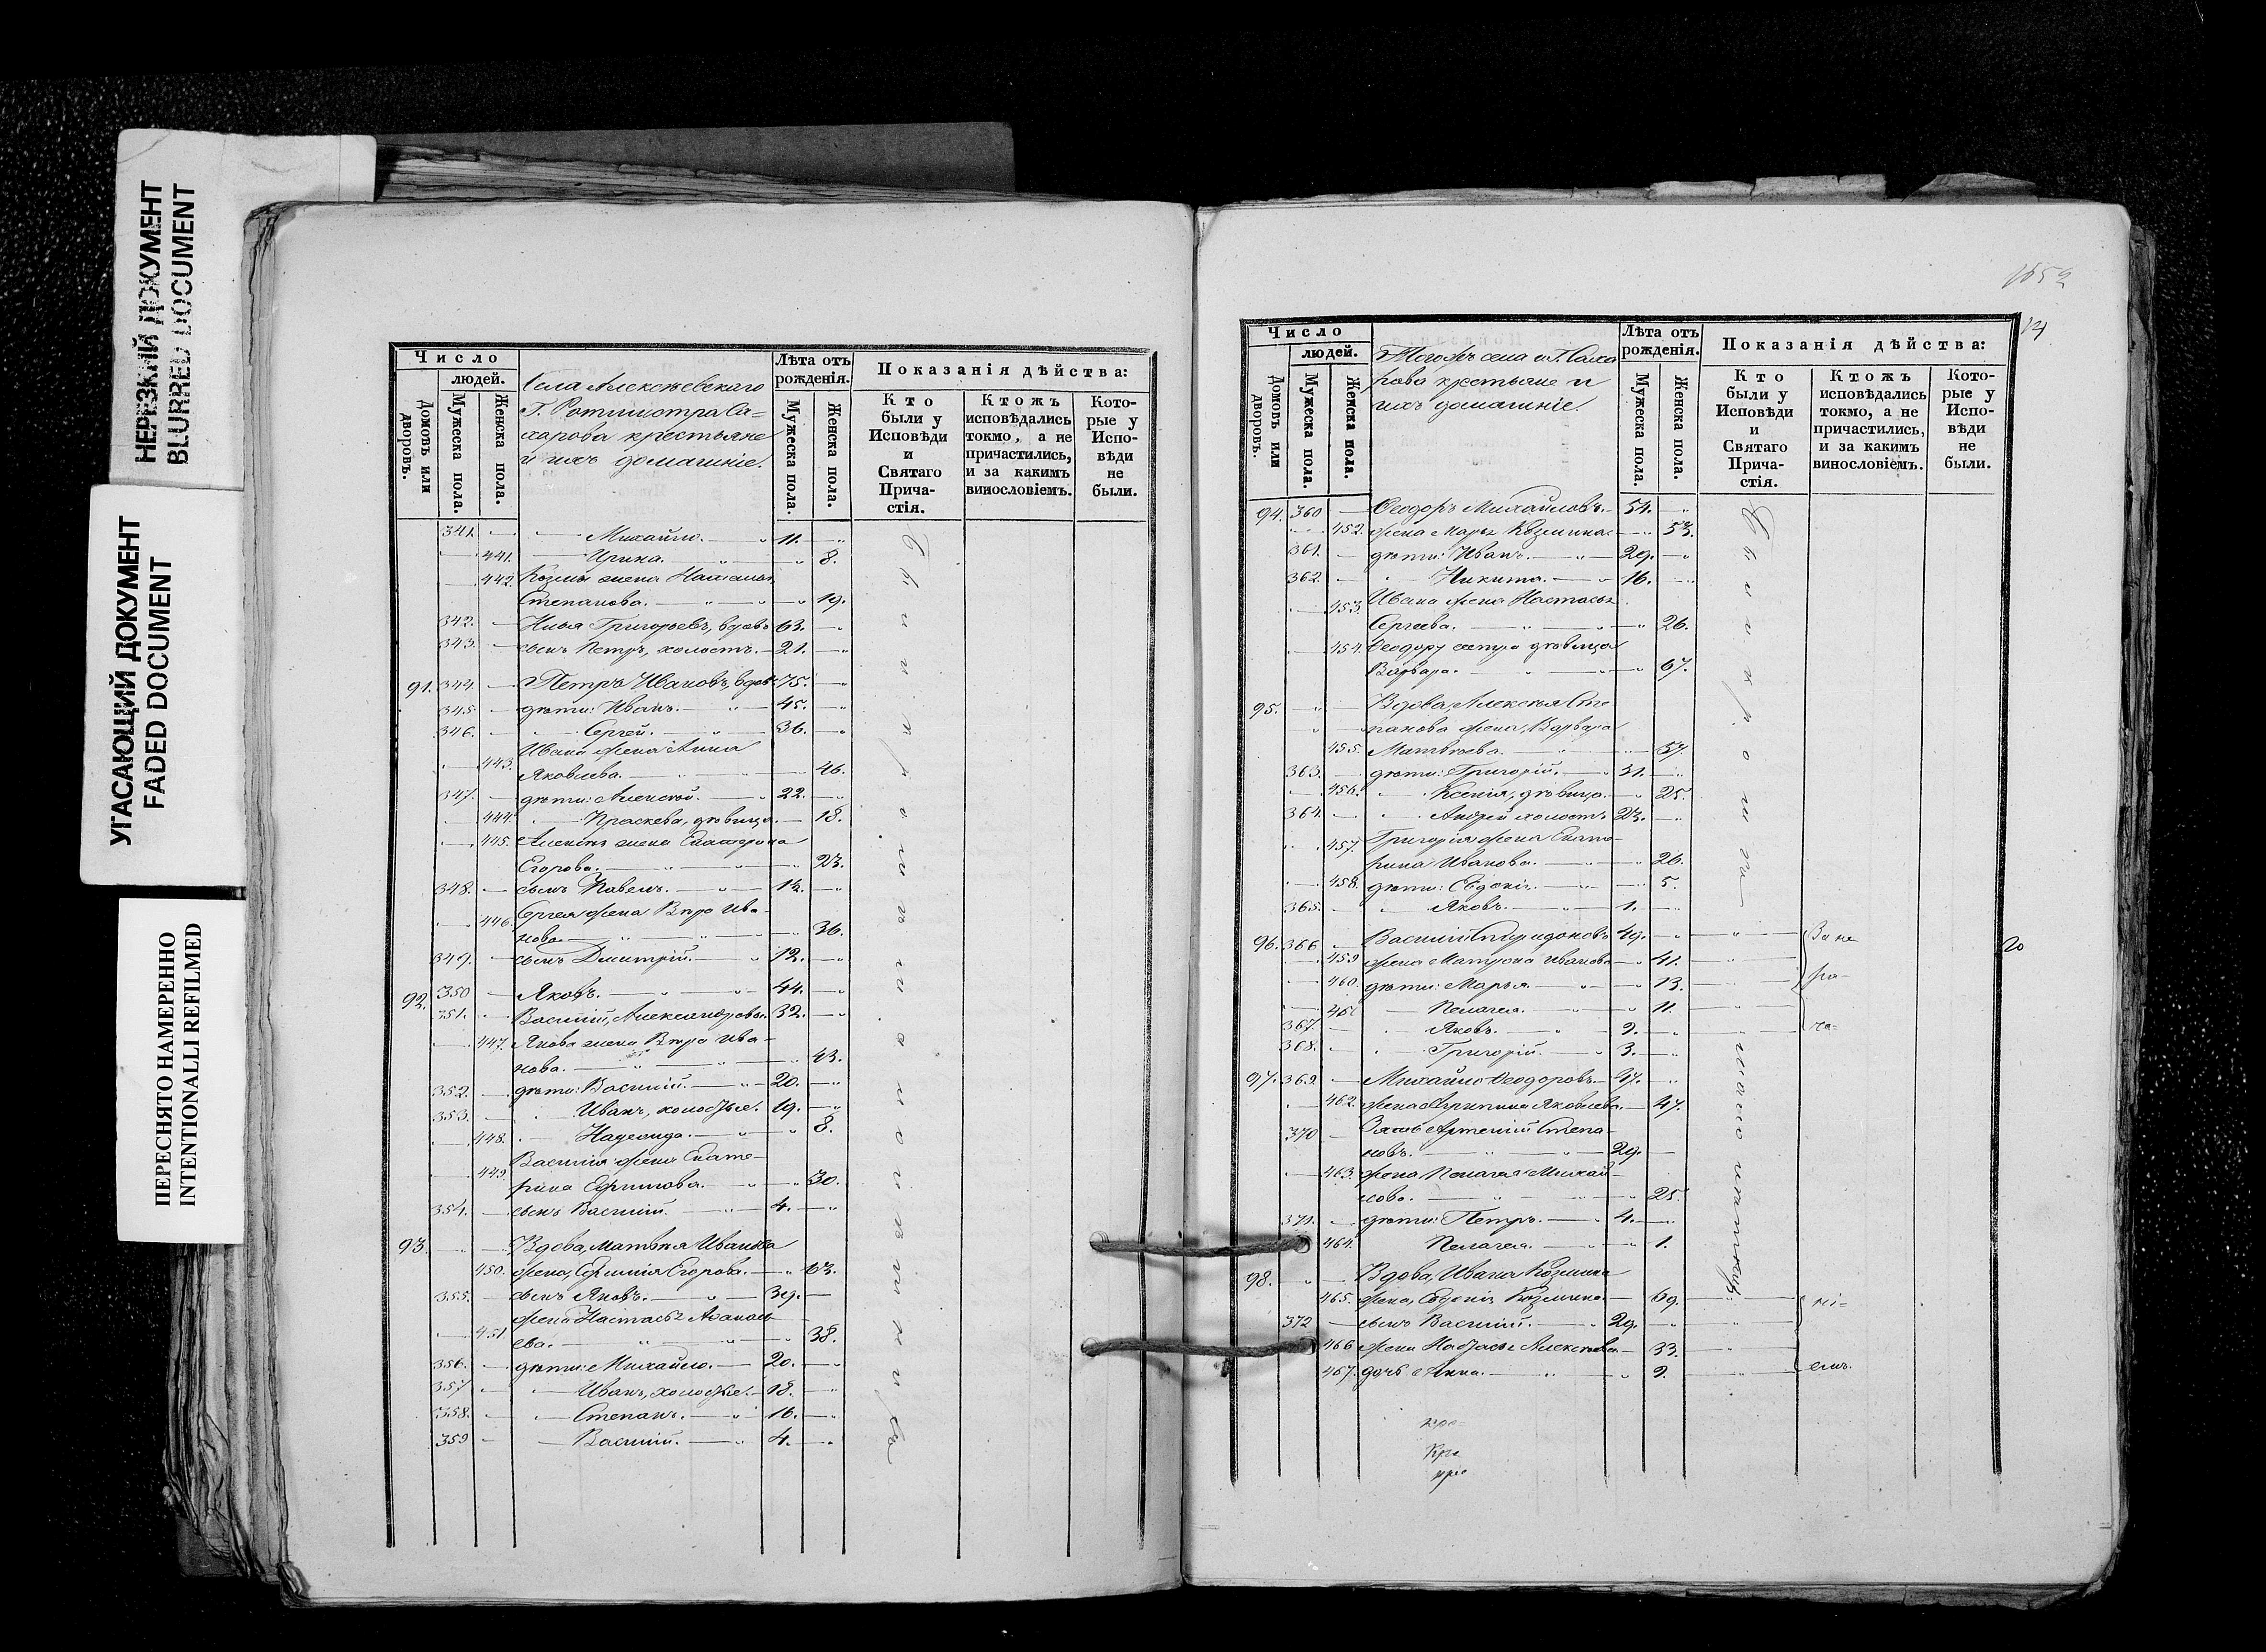 НЕРЕЗКИЙ ДОКУМЕНТ
BLURRED DOCUMENT
УГАСАЮЩИЙ ДОКУМЕНТ
FADED DOCUMENT
ПЕРЕСНЯТО НАМЕРЕННО
INTENTIONALLI REFILMED
Число
людей.
Домовъ или дворовъ.
Мужеска пола.
Женска пола.
Села Алексѣевскаго
Г. Ротмистра Са=
харова крестьяне
и ихъ домашніе.
Лѣта отъ рожденія.
Мужеска пола.
Женска пола.
Показанія дѣйства:
Кто были у Исповѣди и Святаго Прича-стія.
Ктожъ исповѣдались токмо, а не причастились, и за какимъ винословіемъ.
Кото-рые у Испо-вѣди не были.
341. Михайло. 11.
441. Ирина. 8.
442. Козмы жена Наталья
Степанова. 19.
342. Илья Григорьевъ, вдовъ 63.
343. сынъ Петръ, холостъ. 21.
91. 344. Петръ Ивановъ, вдовъ 75.
345. дѣти: Иванъ. 45.
346. Сергей. 36.
443. Ивана жена Анна
Яковлева. 46.
347. дѣти: Алексѣй. 22.
444. Праскева, дѣвица. 18.
445. Алексѣя жена Екатерина
Егорова. 23.
348. сынъ Павелъ. 14.
446. Сергея жена Вѣра Ива-
нова. 36.
349. сынъ Дмитрій. 12.
92. 350 Яковъ. 44.
351. Василій, Александровы. 32.
447. Якова жена Вѣра Ива-
нова. 43.
352. дѣти: Василій. 20.
353. Иванъ, холостые. 19.
448. Надежда. 8.
449. Василія жена Екате-
рина Ефимова. 30.
354. сынъ Василій. 4.
93. Вдова, Матвѣя Иванова
450. жена, Ефимія Егорова. 63.
355. сынъ Яковъ. 39.
451. жена Настасья Аѳанась
ева. 38.
356. дѣти: Михайло. 20.
357 Иванъ, холостые. 18.
358. Степанъ. 16.
359 Василій. 4.
1652
Число
людей.
Домовъ или дворовъ.
Мужеска пола.
Женска пола.
Тогожъ села и Г. Саха
рова крестьяне и
ихъ домашніе.
Лѣта отъ рожденія.
Мужеска пола.
Женска пола.
Показанія дѣйства:
Кто были у Исповѣди и Святаго Прича-стія.
Ктожъ исповѣдались токмо, а не причастились, и за какимъ винословіемъ.
Кото-рые у Испо-вѣди не были.
94. 360 Ѳеодоръ Михайловъ. 54.
452. жена Марья Козмина 53.
361. дѣти: Иванъ. 29.
362. Никита. 16.
453. Ивана жена Настасья
Сергеева. 26.
454. Ѳеодору сестра дѣвица
Варвара. 67.
95. Вдова, Алексѣя Сте
панова жена, Варвара
455. Матвѣева. 57.
363. дѣти: Григорій. 31.
456. Ксенія, дѣвица. 25.
364. Андрей холостъ 23.
457. Григорія жена Екате-
рина Иванова. 26.
458. дѣти: Евдокія. 5.
365. Яковъ. 1.
96. 366 Василій Спиридоновъ 49.
459 жена Матрона Иванова 41.
460. дѣти: Марья. 13.
461 Пелагея. 11.
367. Яковъ. 9.
368. Григорій. 3.
За не
ра-
че-
97. 369. Михайло Ѳеодоровъ 47.
462. жена Агрипина Яковлева. 47.
370 Зять Артемій Степа-
новъ. 29.
463. жена Пелагея Михай
лова. 25.
371. дѣти: Петръ. 4.
464. Пелагея. 1.
98. Вдова, Ивана Козмина
465. жена, Евдокія Козмина. 69.
372 сынъ Василій. 29.
466 жена Настасья Алексѣева 33.
467. дочь Анна. 9.
ні-
емъ.
20